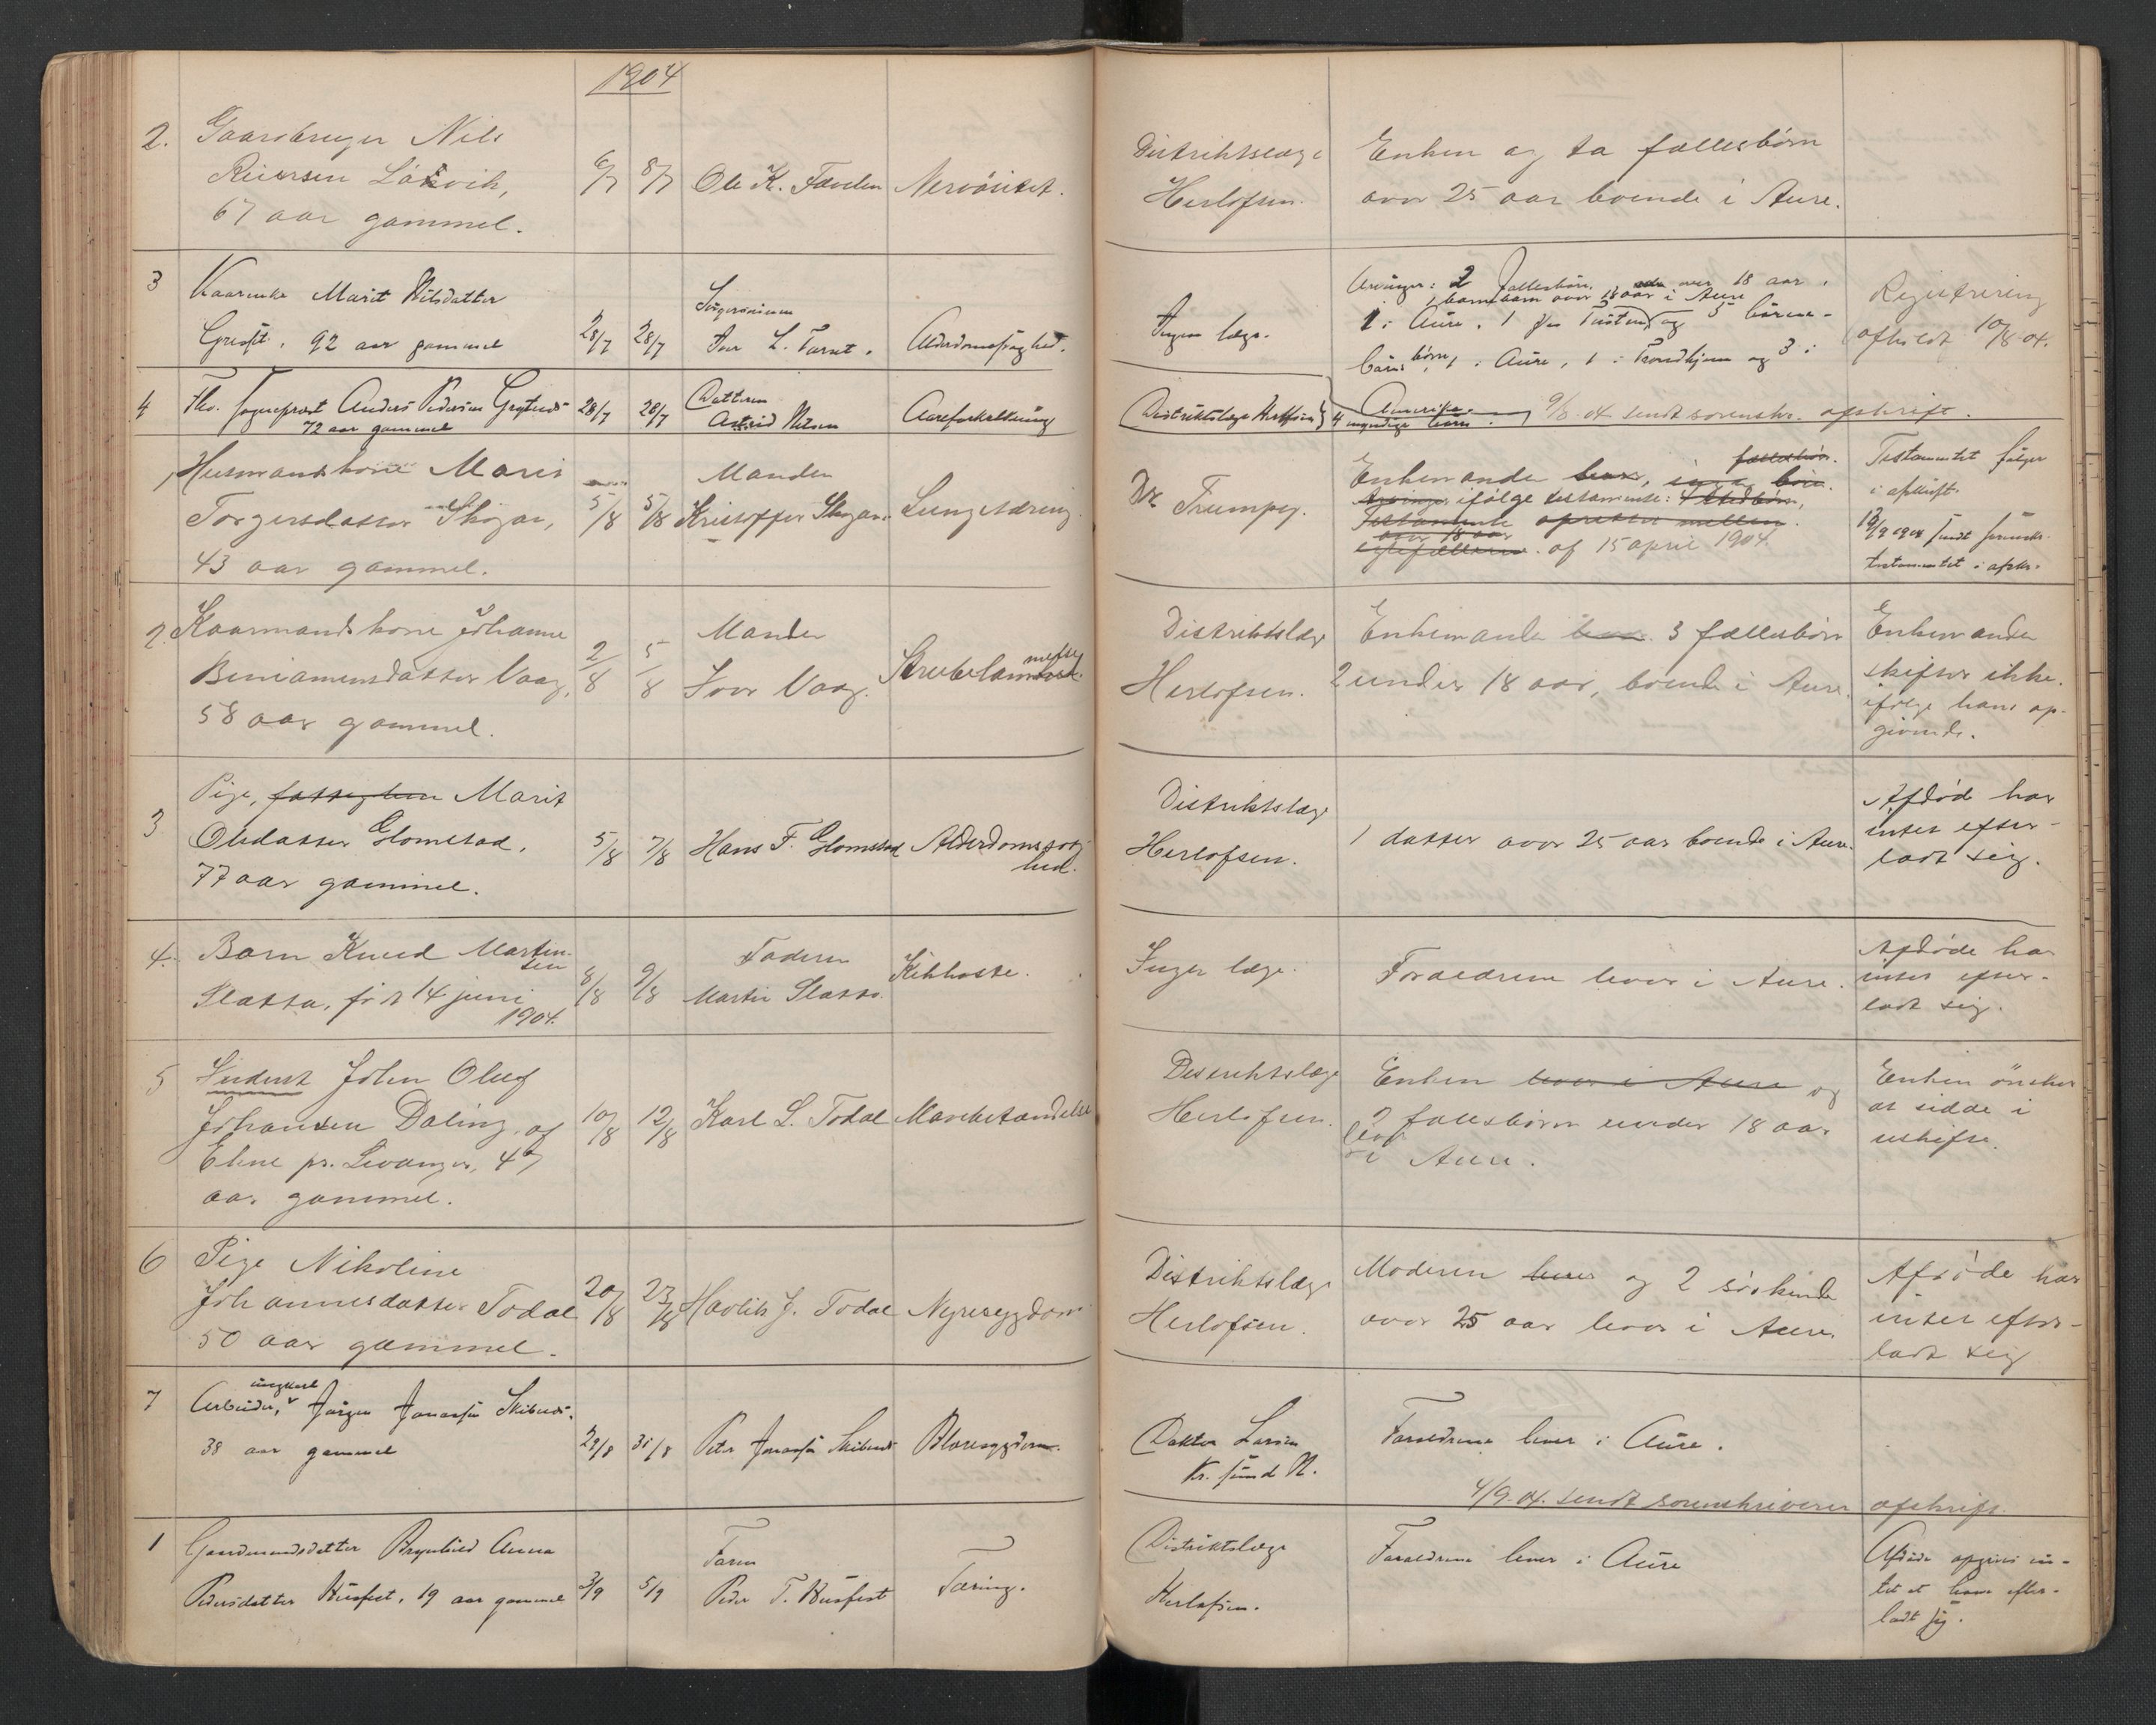 1904
2. Gaardbruger Nils
Reiersen Lökvik,
67 aar gammel.
6/7 8/7 Ole K. Nervösitet.
Distriktslæge
Herlofsen.
Enken og to fællesbörn
over 25 aar boende i Aure.
3 Kaarenke Marit Nilsdatter
92 aar gammel
28/7 28/7
Iver L. Alderdomssvaghed.
Ingen læge.
Arvinger: 2 fællesbörn over 18 aar.
1 barnebarn over 18 aar i Aure
1 i Aure, 1 paa Tustern og 5 börne-
börns börn, 1 i Aure, 1 i Trondhjem og 3 i
Amerika.
Registrering
afholdt 10/8 04.
4 Fhv. sogneprest Anders Pedersen
72 aar gammel
28/7 28/7 Datteren
Astrid Nilsen
Aareforkalkning
Distriktslæge Herlofsen
4 myndige börn. 9/8 04 sendt sorenskr. afskrift.
1 Husmandskone Marit
Torgersdatter Skogan,
43 aar gammel.
5/8 5/8
Manden
Kristoffer Skogan.
Lungetæring.
Dr Trumpy.
Enkemanden lever, ingen börn.
fællesbörn.
Arvinger ifölge testamente: 4 stedbörn,
Testamente oprettet mellem
over 18 aar
egtefællerne. af 15 april 1904.
Testamentet fölger
i afskrift.
19/9 1904 sendt sorenskr.
testamentet i afskr.
2. Kaarmandskone Johanne
Beniamensdatter Vaag,
58 aar gammel.
2/8 5/8
Manden
Iver Vaag.
Strubelammelse
Distriktslæge
Herlofsen.
Enkemanden lever. 3 fællesbörn
2 under 18 aar, boende i Aure.
Enkemanden
skifter ikke.
ifölge hans op-
givende.
3 Pige, fattiglem Marit
Olsdatter Glomstad,
77 aar gammel.
5/8 7/8 Hans F. Glomstad Alderdomssvag-
hed.
Distriktslæge
Herlofsen.
1 datter over 25 aar boende i Aure.
Afdöd har
intet efter-
ladt sig.
4. Barn Knud Martin-
sen
Slatta, född 14 juni
1904.
8/8 9/8
Faderen
Martin Slatta.
Kikhoste.
Ingen læge.
Forældrene lever i Aure.
Afdöde har
intet efter-
ladt sig.
5 Inderst John Oluf
Johansen Daling, af
Ekne pr. Levanger, 47
aar gammel.
10/8 12/8 Karl L. Todal Mavebetændelse
Distriktslæge
Herlofsen.
Enken lever i Aure og
2 fællesbörn under 18 aar
lever
i Aure.
Enken önsker
at sidde i
uskifte.
6 Pige Nikoline
Johannesdatter Todal
50 aar gammel.
20/8 23/8 Havlik J. Todal Nyresygdom
Distriktslæge
Herlofsen.
Moderen lever og 2 söskende
over 25 aar lever i Aure.
Afdöde har
intet efter-
ladt sig
7 Arbeider, ungkarl Jörgen Jonassen Skibnes.
38 aar gammel
29/8 31/8 Peter Jonassen Skibnes Blæresygdom.
Doktor Larsen
Kr. sund N.
Forældrene lever i Aure.
4/9. 04. sendt sorenskriveren afskrift.
1 Gaardmandsdatter Brynhild Anna
Pedersdatter Husfest, 19 aar gammel
3/9 5/9
Faren
Peder T. Husfest
Tæring.
Distriktslæge
Herlofsen.
Forældrene lever i Aure
Afdöde opgives in-
tet at have efter-
ladt sig.